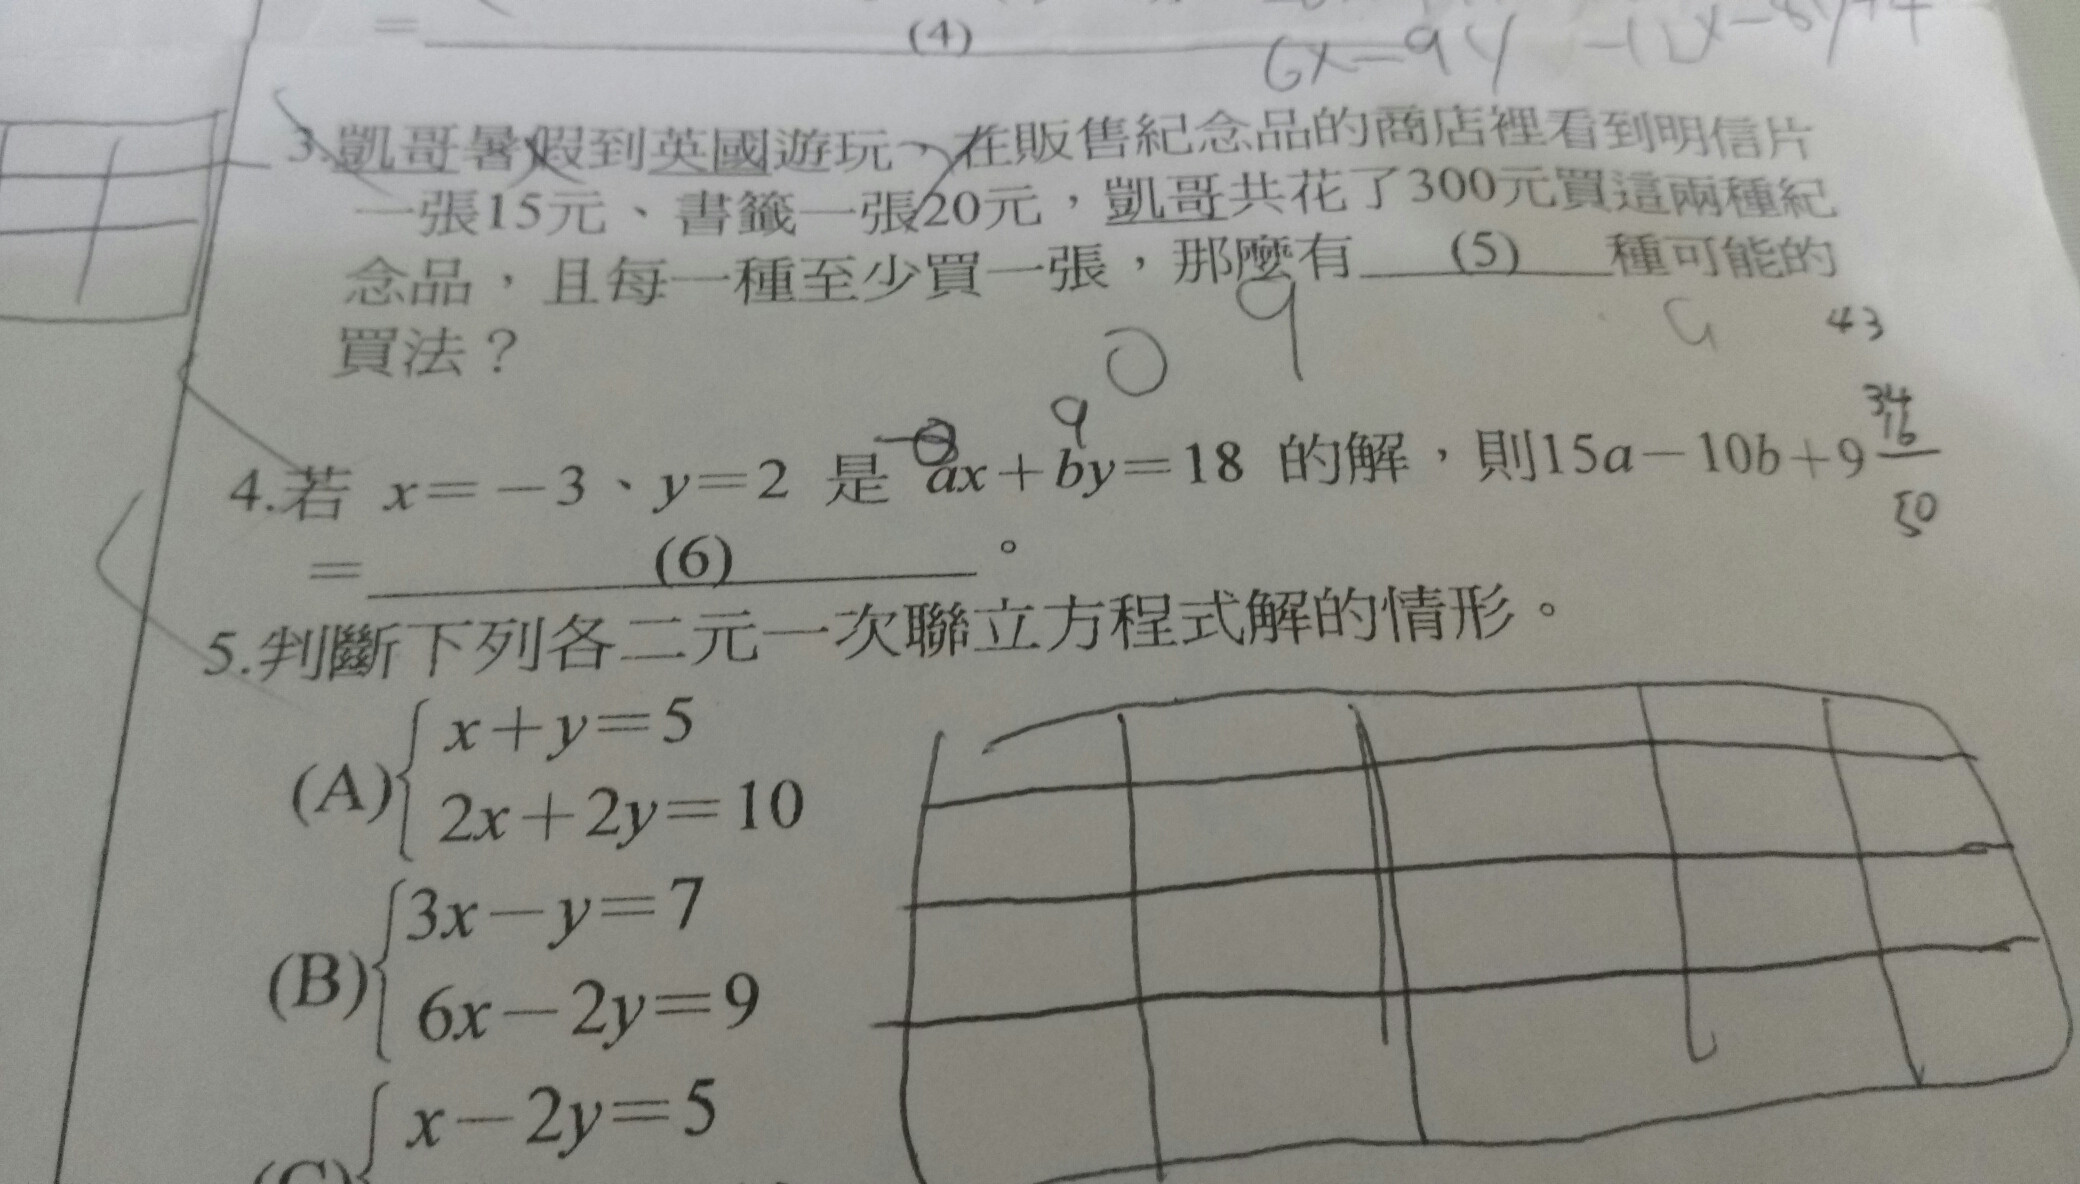 = (4)
6x-9y -12x-8y+4
3.凱哥暑假到英國遊玩，在販售紀念品的商店裡看到明信片
一張15元、書籤一張20元，凱哥共花了300元買這兩種紀
念品，且每一種至少買一張，那麼有 (5) 種可能的
買法？
0 9 43
-0 9 34
16
4.若 x=-3、y=2 是 ax+by=18 的解，則15a-10b+9
50
= (6) 。
5.判斷下列各二元一次聯立方程式解的情形。
x+y=5
(A)
2x+2y=10
3x-y=7
(B)
6x-2y=9
x-2y=5
(C)